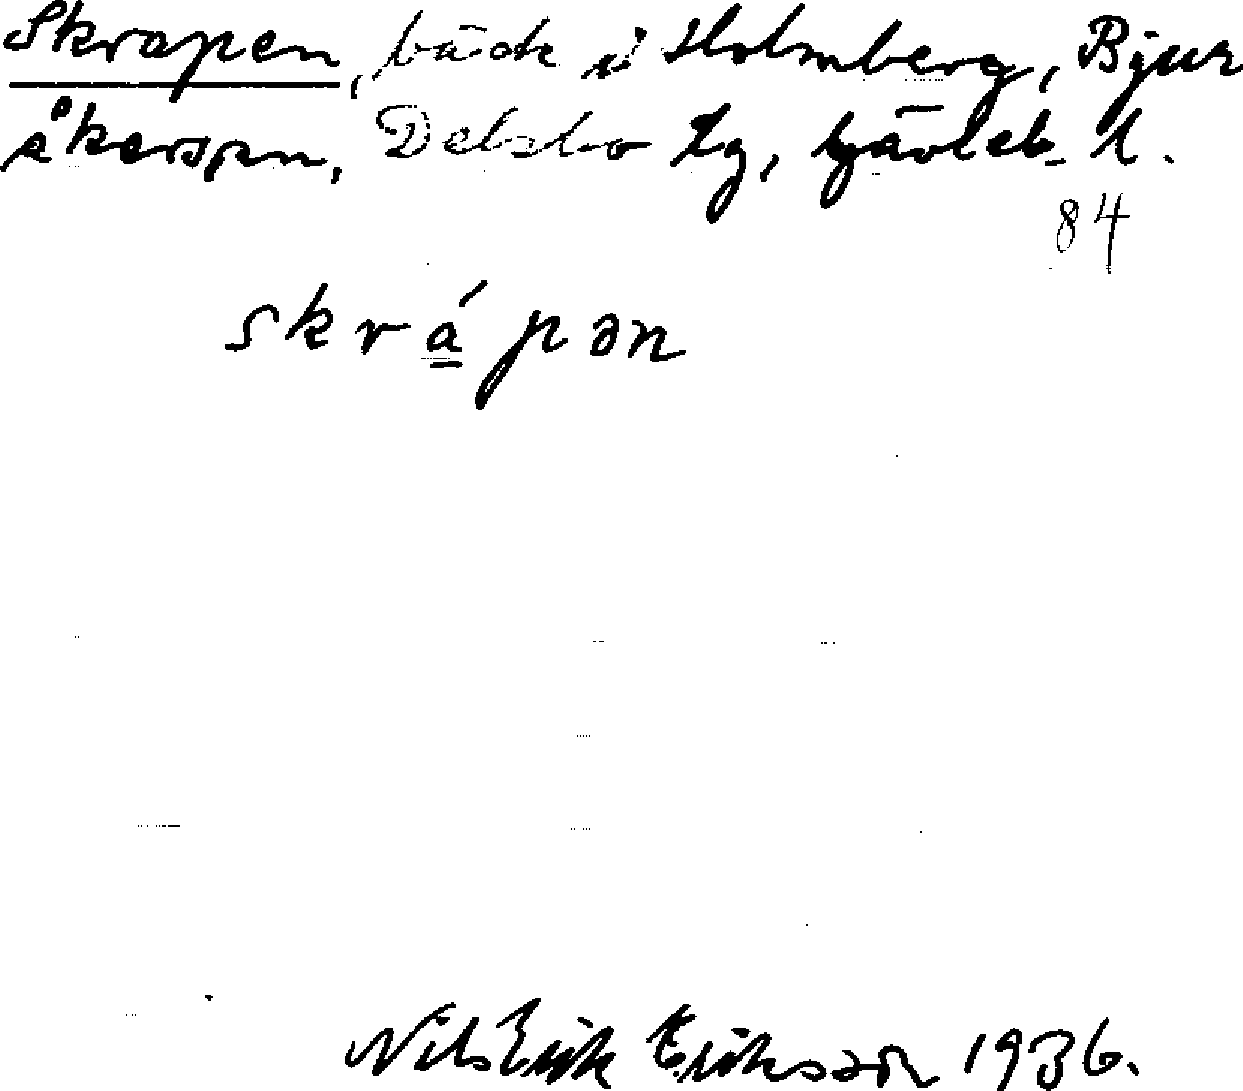 Skrapen, bäck i Holmberg, Bjur
åkers sn, Delsbo tg, Gävleb. l.
84
skrápən
Nils Erik Eriksson 1936.